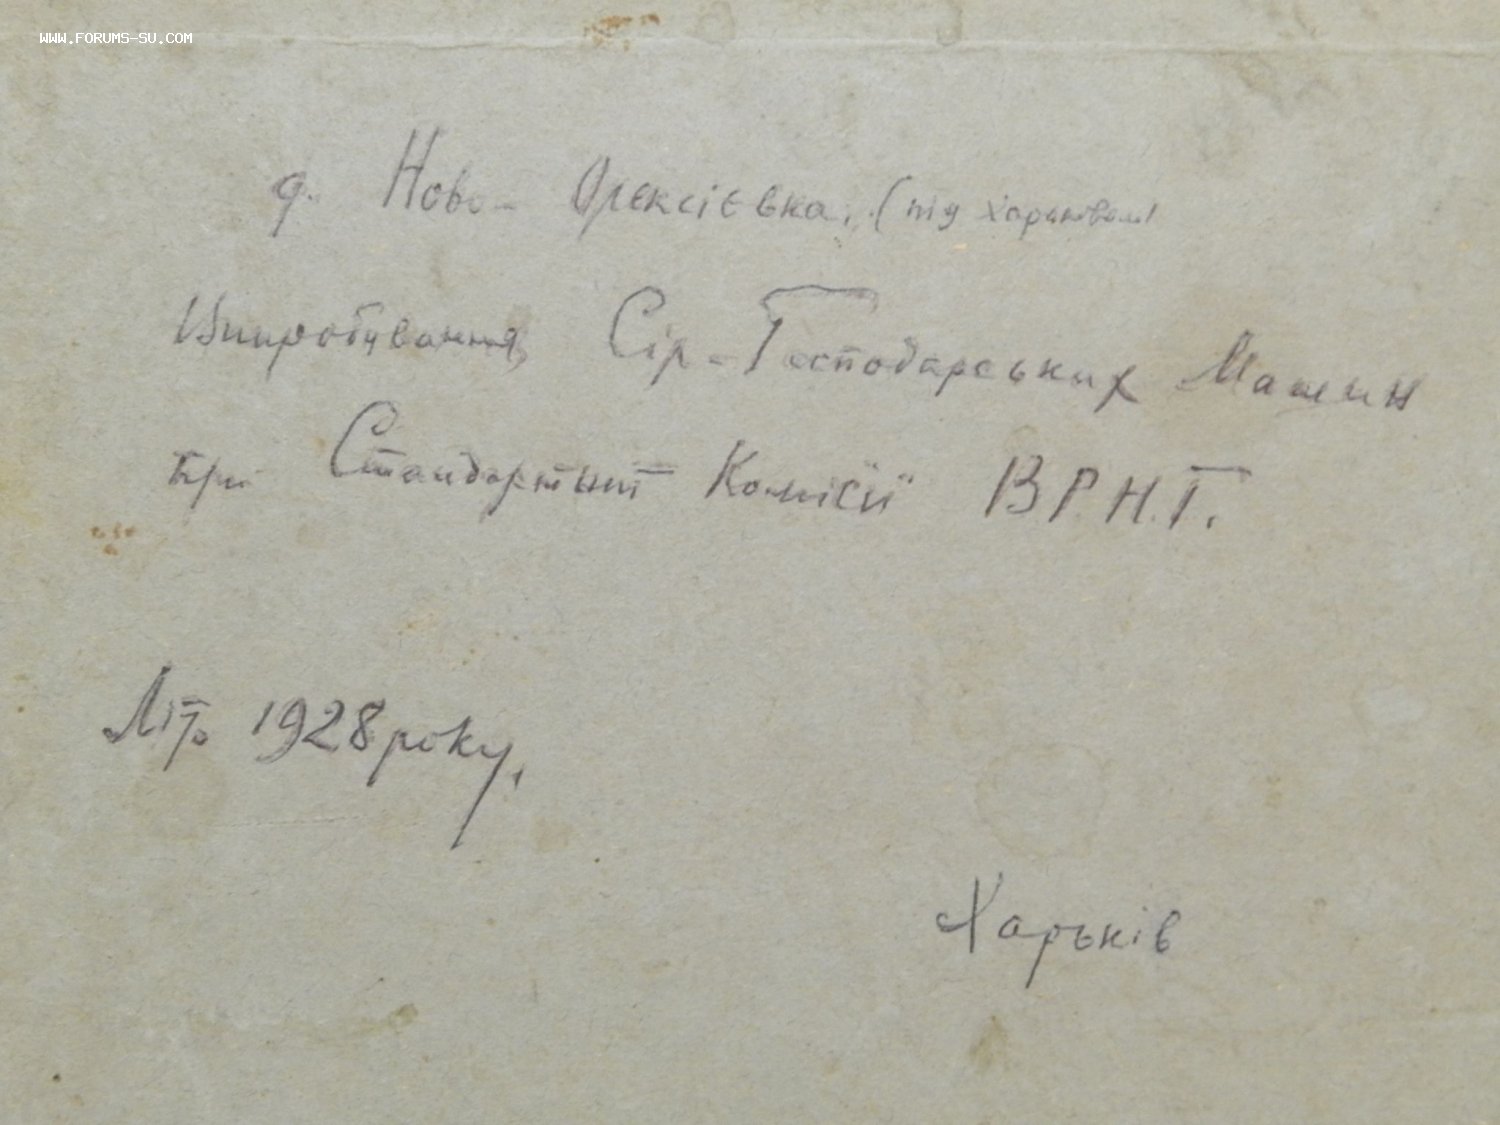 WWW.FORUMS-SU.COM
д. Ново-Олексієвка, (під Харьковом)
Випробування Сір.-Господарських Машин
при Стандартній Комісії В.Р.Н.Г.
Літо 1928 року,
Харьків